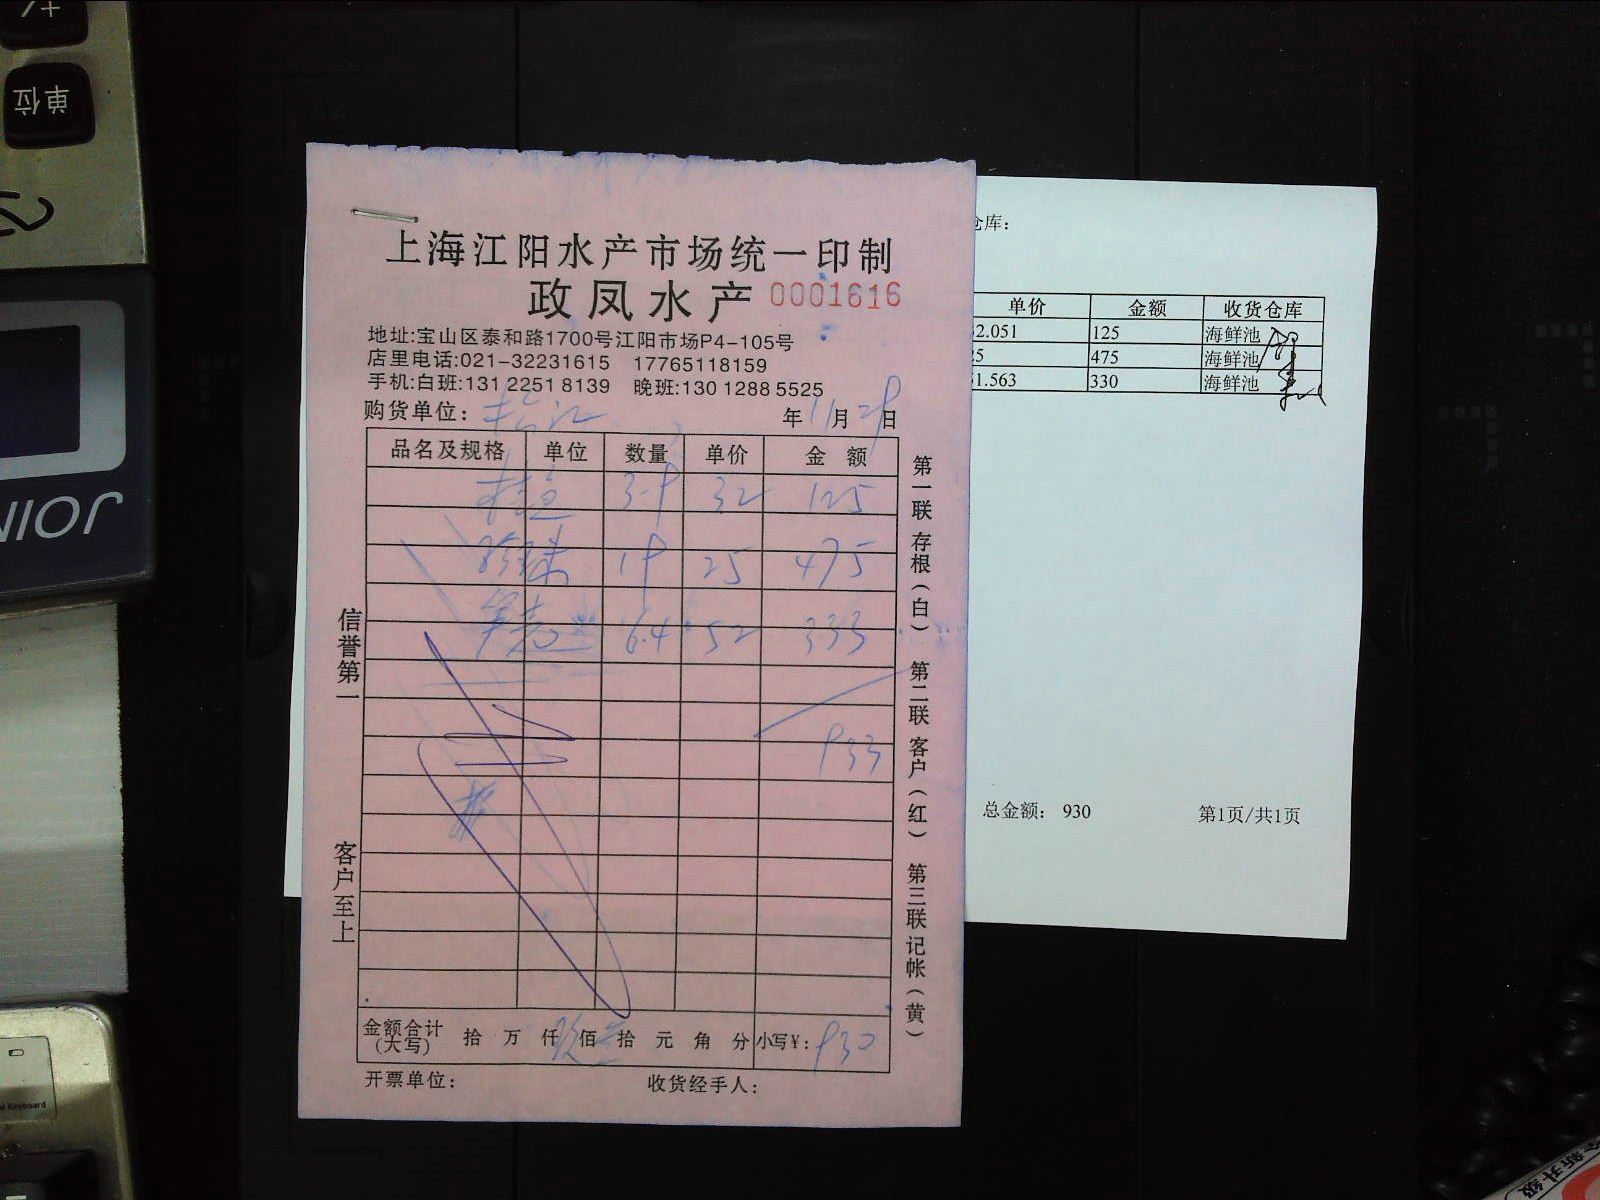 单位
JOIN
上海江阳水产市场统一印制
政凤水产 0001616
地址:宝山区泰和路1700号江阳市场P4-105号
店里电话:021-32231615 17765118159
手机:白班:131 2251 8139 晚班:130 1288 5525
购货单位: 年 11 月 29 日
品名及规格 单位 数量 单价 金额
3.9 32 125
珍珠 19 25 475
6.4 52 333
933
金额合计(大写) 拾 万 仟 玖 佰 叁 拾 元 角 分 小写¥: 930
开票单位: 收货经手人:
信誉第一
客户至上
第一联存根(白) 第二联客户(红) 第三联记帐(黄)
仓库:
单价 金额 收货仓库
2.051 125 海鲜池
5 475 海鲜池
1.563 330 海鲜池
总金额: 930 第1页/共1页
Keyboard
全新升级